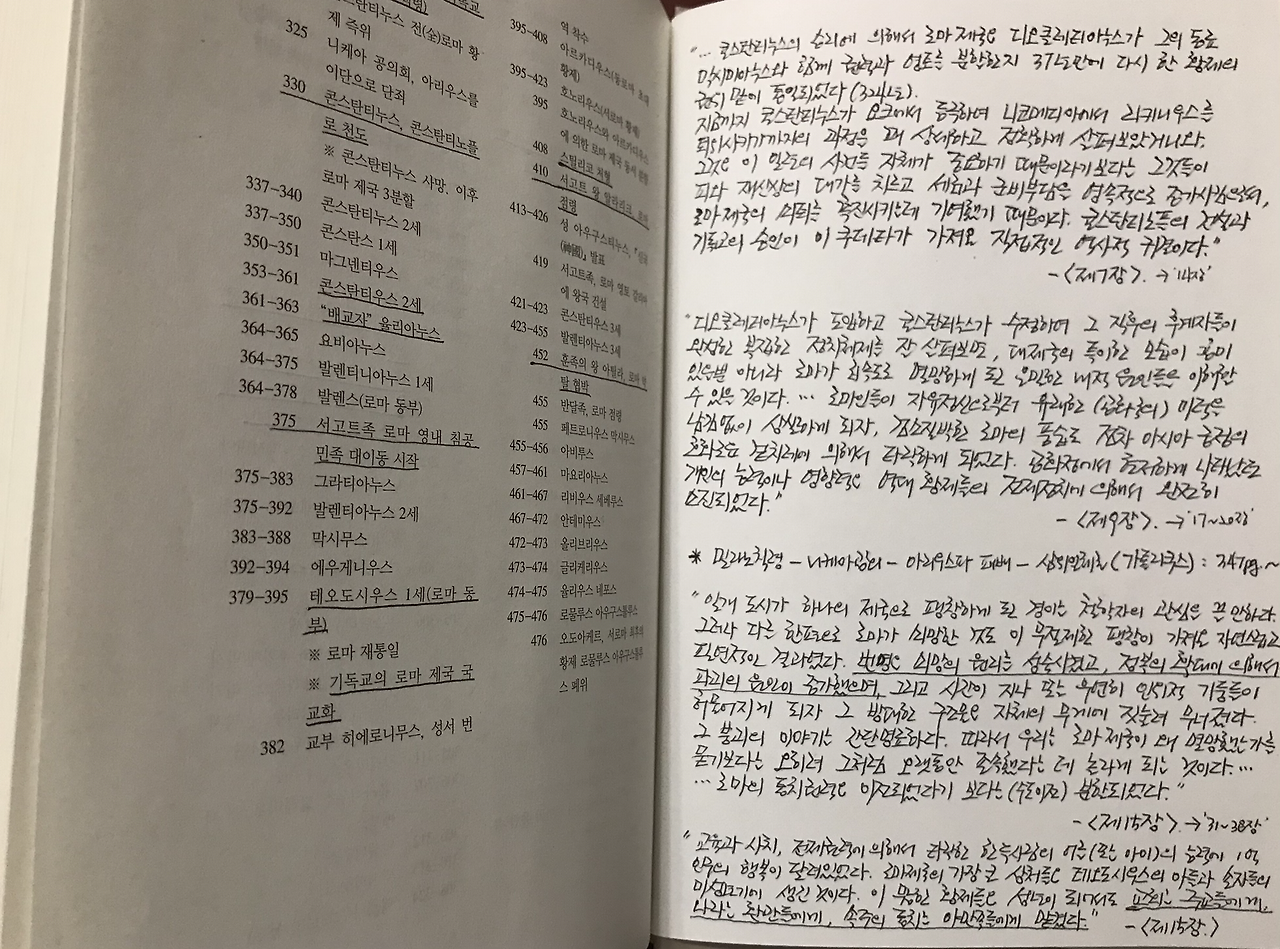 콘스탄티누스 전(全)로마 황
제 즉위
325 니케아 공의회, 아리우스를
이단으로 단죄
330 콘스탄티누스, 콘스탄티노플
로 천도
※ 콘스탄티누스 사망, 이후
로마 제국 3분할
337-340 콘스탄티누스 2세
337-350 콘스탄스 1세
350-351 마그넨티우스
353-361 콘스탄티우스 2세
361-363 “배교자” 율리아누스
364-365 요비아누스
364-375 발렌티니아누스 1세
364-378 발렌스(로마 동부)
375 서고트족 로마 영내 침공
민족 대이동 시작
375-383 그라티아누스
375-392 발렌티아누스 2세
383-388 막시무스
392-394 에우게니우스
379-395 테오도시우스 1세(로마 동
부)
※ 로마 재통일
※ 기독교의 로마 제국 국
교화
382 교부 히에로니무스, 성서 번
역 착수
395-408 아르카디우스(동로마 초대
황제)
395-423 호노리우스(서로마 황제)
395 호노리우스와 아르카디우스
에 의한 로마 제국 동서 분할
408 스틸리코 처형
410 서고트 왕 알라리크, 로마
점령
413-426 성 아우구스티누스, 『신국
(神國)』 발표
419 서고트족, 로마 영토 갈리아
에 왕국 건설
421-423 콘스탄티우스 3세
423-455 발렌티아누스 3세
452 훈족의 왕 아틸라, 로마 약
탈 협박
455 반달족, 로마 점령
455 페트로니우스 막시무스
455-456 아비투스
457-461 마요리아누스
461-467 리비우스 세베루스
467-472 안테미우스
472-473 올리브리우스
473-474 글리케리우스
474-475 율리우스 네포스
475-476 로물루스 아우구스툴루스
476 오도아케르, 서로마 최후의
황제 로물루스 아우구스툴루
스 폐위
“… 콘스탄티누스의 승리에 의해서 로마 제국은 디오클레티아누스가 그의 동료
막시미아누스와 함께 권력과 영토를 분할한지 37년만에 다시 한 황제의
권위 밑에 통일되었다(324년).
지금까지 콘스탄티누스가 요크에서 등극하여 니코메디아에서 리키니우스를
퇴위시키기까지의 과정을 꽤 상세하고 정확하게 살펴보았거니와,
그것은 이 일련의 사건들 자체가 중요하기 때문이라기보다는 그것들이
피와 재산상의 대가를 치르고 세금과 군비부담을 영속적으로 증가시킴으로써,
로마제국의 쇠퇴를 촉진시키는데 기여했기 때문이다. 콘스탄티노플의 건설과
기독교의 승인이 이 쿠데타가 가져온 직접적인 역사적 귀결이다.”
- <제7장>. → '14장'
“디오클레티아누스가 도입하고 콘스탄티누스가 수정하며 그 직후의 후계자들이
완성한 복잡한 정치체제를 잘 살펴보면, 대제국의 특이한 모습이 흥미
있을뿐 아니라 로마가 급속도로 멸망하게 된 은밀한 내적 요인들을 이해할
수 있을 것이다. … 로마인들이 자유정신으로부터 유래한 (공화국의) 미덕을
남김없이 상실하게 되자, 검소질박한 로마의 풍습도 점차 아시아 궁정의
호화로운 겉치레에 의해서 타락하게 되었다. 공화정에서 현저하게 나타났던
개인의 능력이나 영향력은 역대 황제들의 전제정치에 의해서 완전히
소진되었다.”
- <제9장>. → '17~20장'
* 밀라노칙령 - 니케아공의 - 아리우스파 패배 - 삼위일체론(가톨리쿠스) : 347pg.~
“일개 도시가 하나의 제국으로 팽창하게 된 경이는 철학자의 관심을 끌 만하다.
그러나 다른 한편으로 로마가 쇠망한 것도 이 무절제한 팽창이 가져온 자연스럽고
필연적인 결과였다. 번영은 쇠망의 원리를 성숙시켰고, 정복의 확대에 의해서
파괴의 요인이 증가했으며, 그리고 시간이 지나 또는 우연히 인위적 기둥들이
허물어지게 되자 그 방대한 구조물은 자체의 무게에 짓눌려 무너졌다.
그 붕괴의 이야기는 간단명료하다. 따라서 우리는 로마제국이 왜 멸망했는가를
묻기보다는 오히려 그처럼 오랫동안 존속했다는 데 놀라게 되는 것이다. …
… 로마의 통치권력은 이전되었다기 보다는 (수도이전) 분할되었다.”
- <제15장>. → '31~38장'
“교육과 사치, 전제권력에 의해서 타락한 한두사람의 어른(또는 아이)의 능력에 1억
인구의 행복이 달려있었다. 로마제국의 가장 큰 상처들은 테오도시우스의 아들과 손자들의
미성년기에 생긴 것이다. 이 못난 황제들은 성년이 되어서도 교회는 주교들에게,
나라는 환관들에게, 속주의 통치는 야만족들에게 맡겼다.”
- <제15장.>